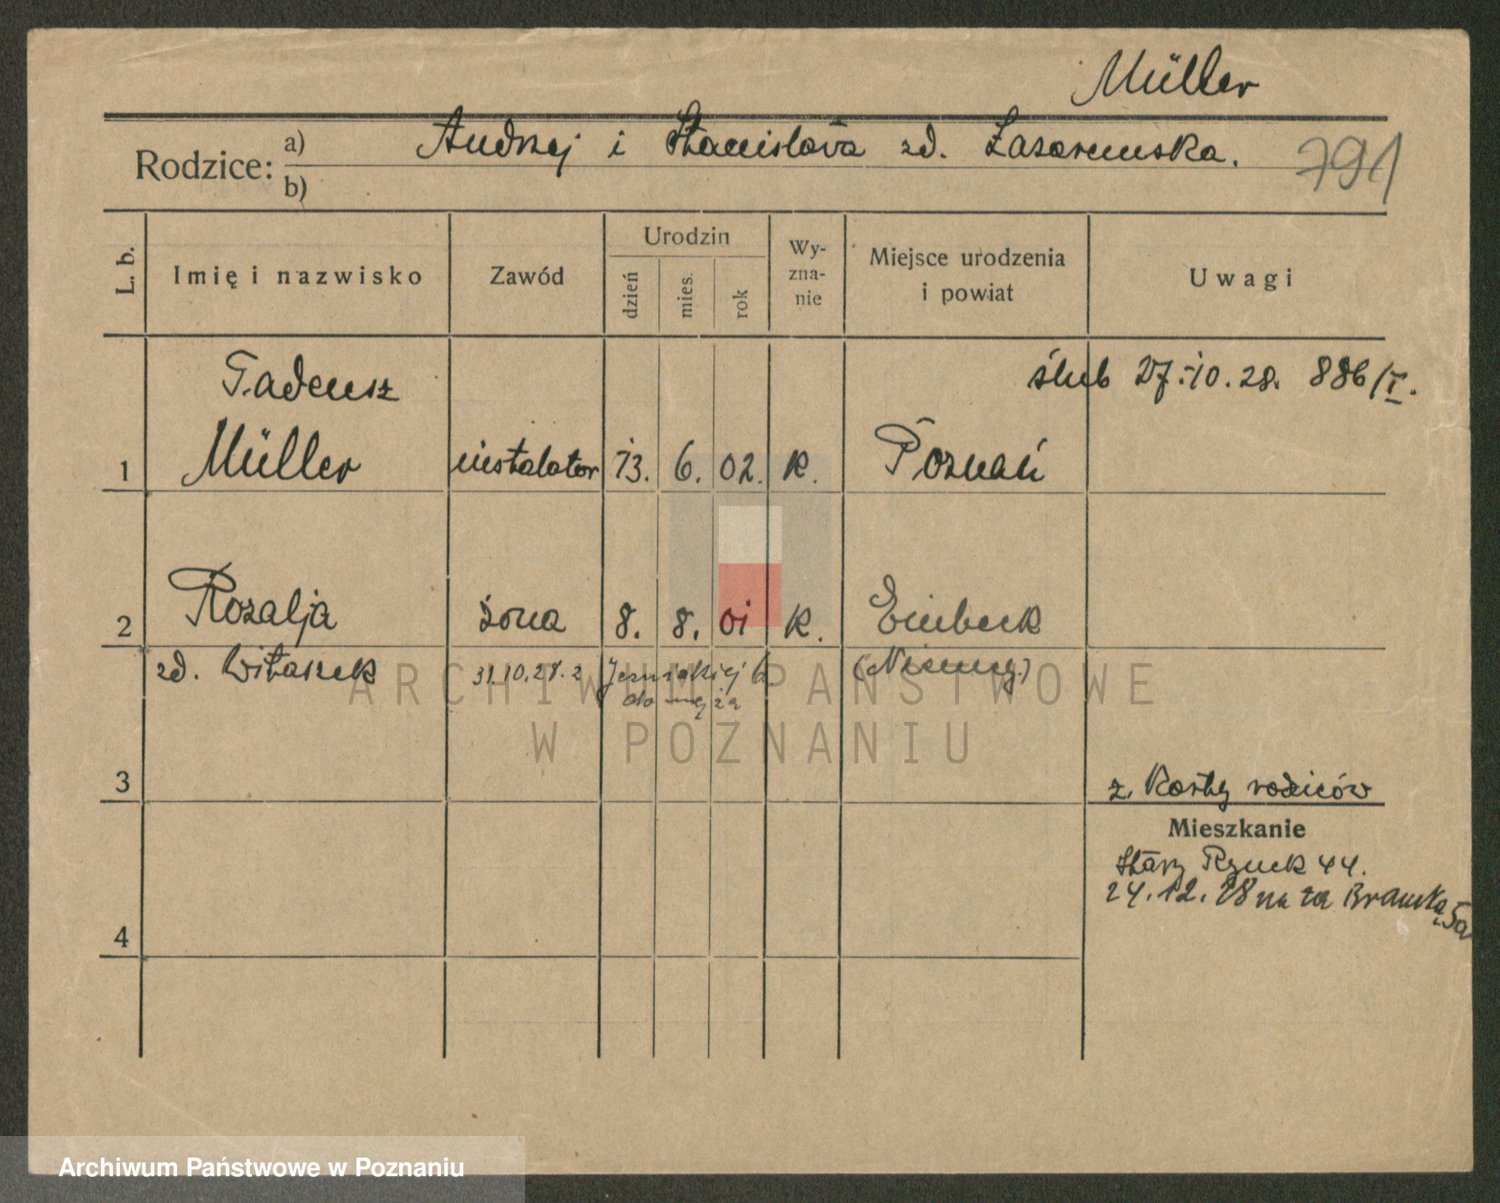 Müller
Rodzice: a) Andrzej i Stanisława zd. Łazarewska. 791
b)
L. b. Imię i nazwisko Zawód Urodzin dzień mies. rok Wyznanie Miejsce urodzenia i powiat Uwagi
ślub 27.10.28. 886/I.
1 Tadeusz Müller instalator 13. 6. 02. k. Poznań
2 Rozalja żona 8. 8. 01 k. Einbeck
zd. Witaszek 31.10.28. z Jezuickiej 6 (Niemcy.)
do męża
3
z. Karty rodziców
Mieszkanie
Stary Rynek 44.
24.12.28 na za Bramką 5a
4
ARCHIWUM PAŃSTWOWE
W POZNANIU
Archiwum Państwowe w Poznaniu